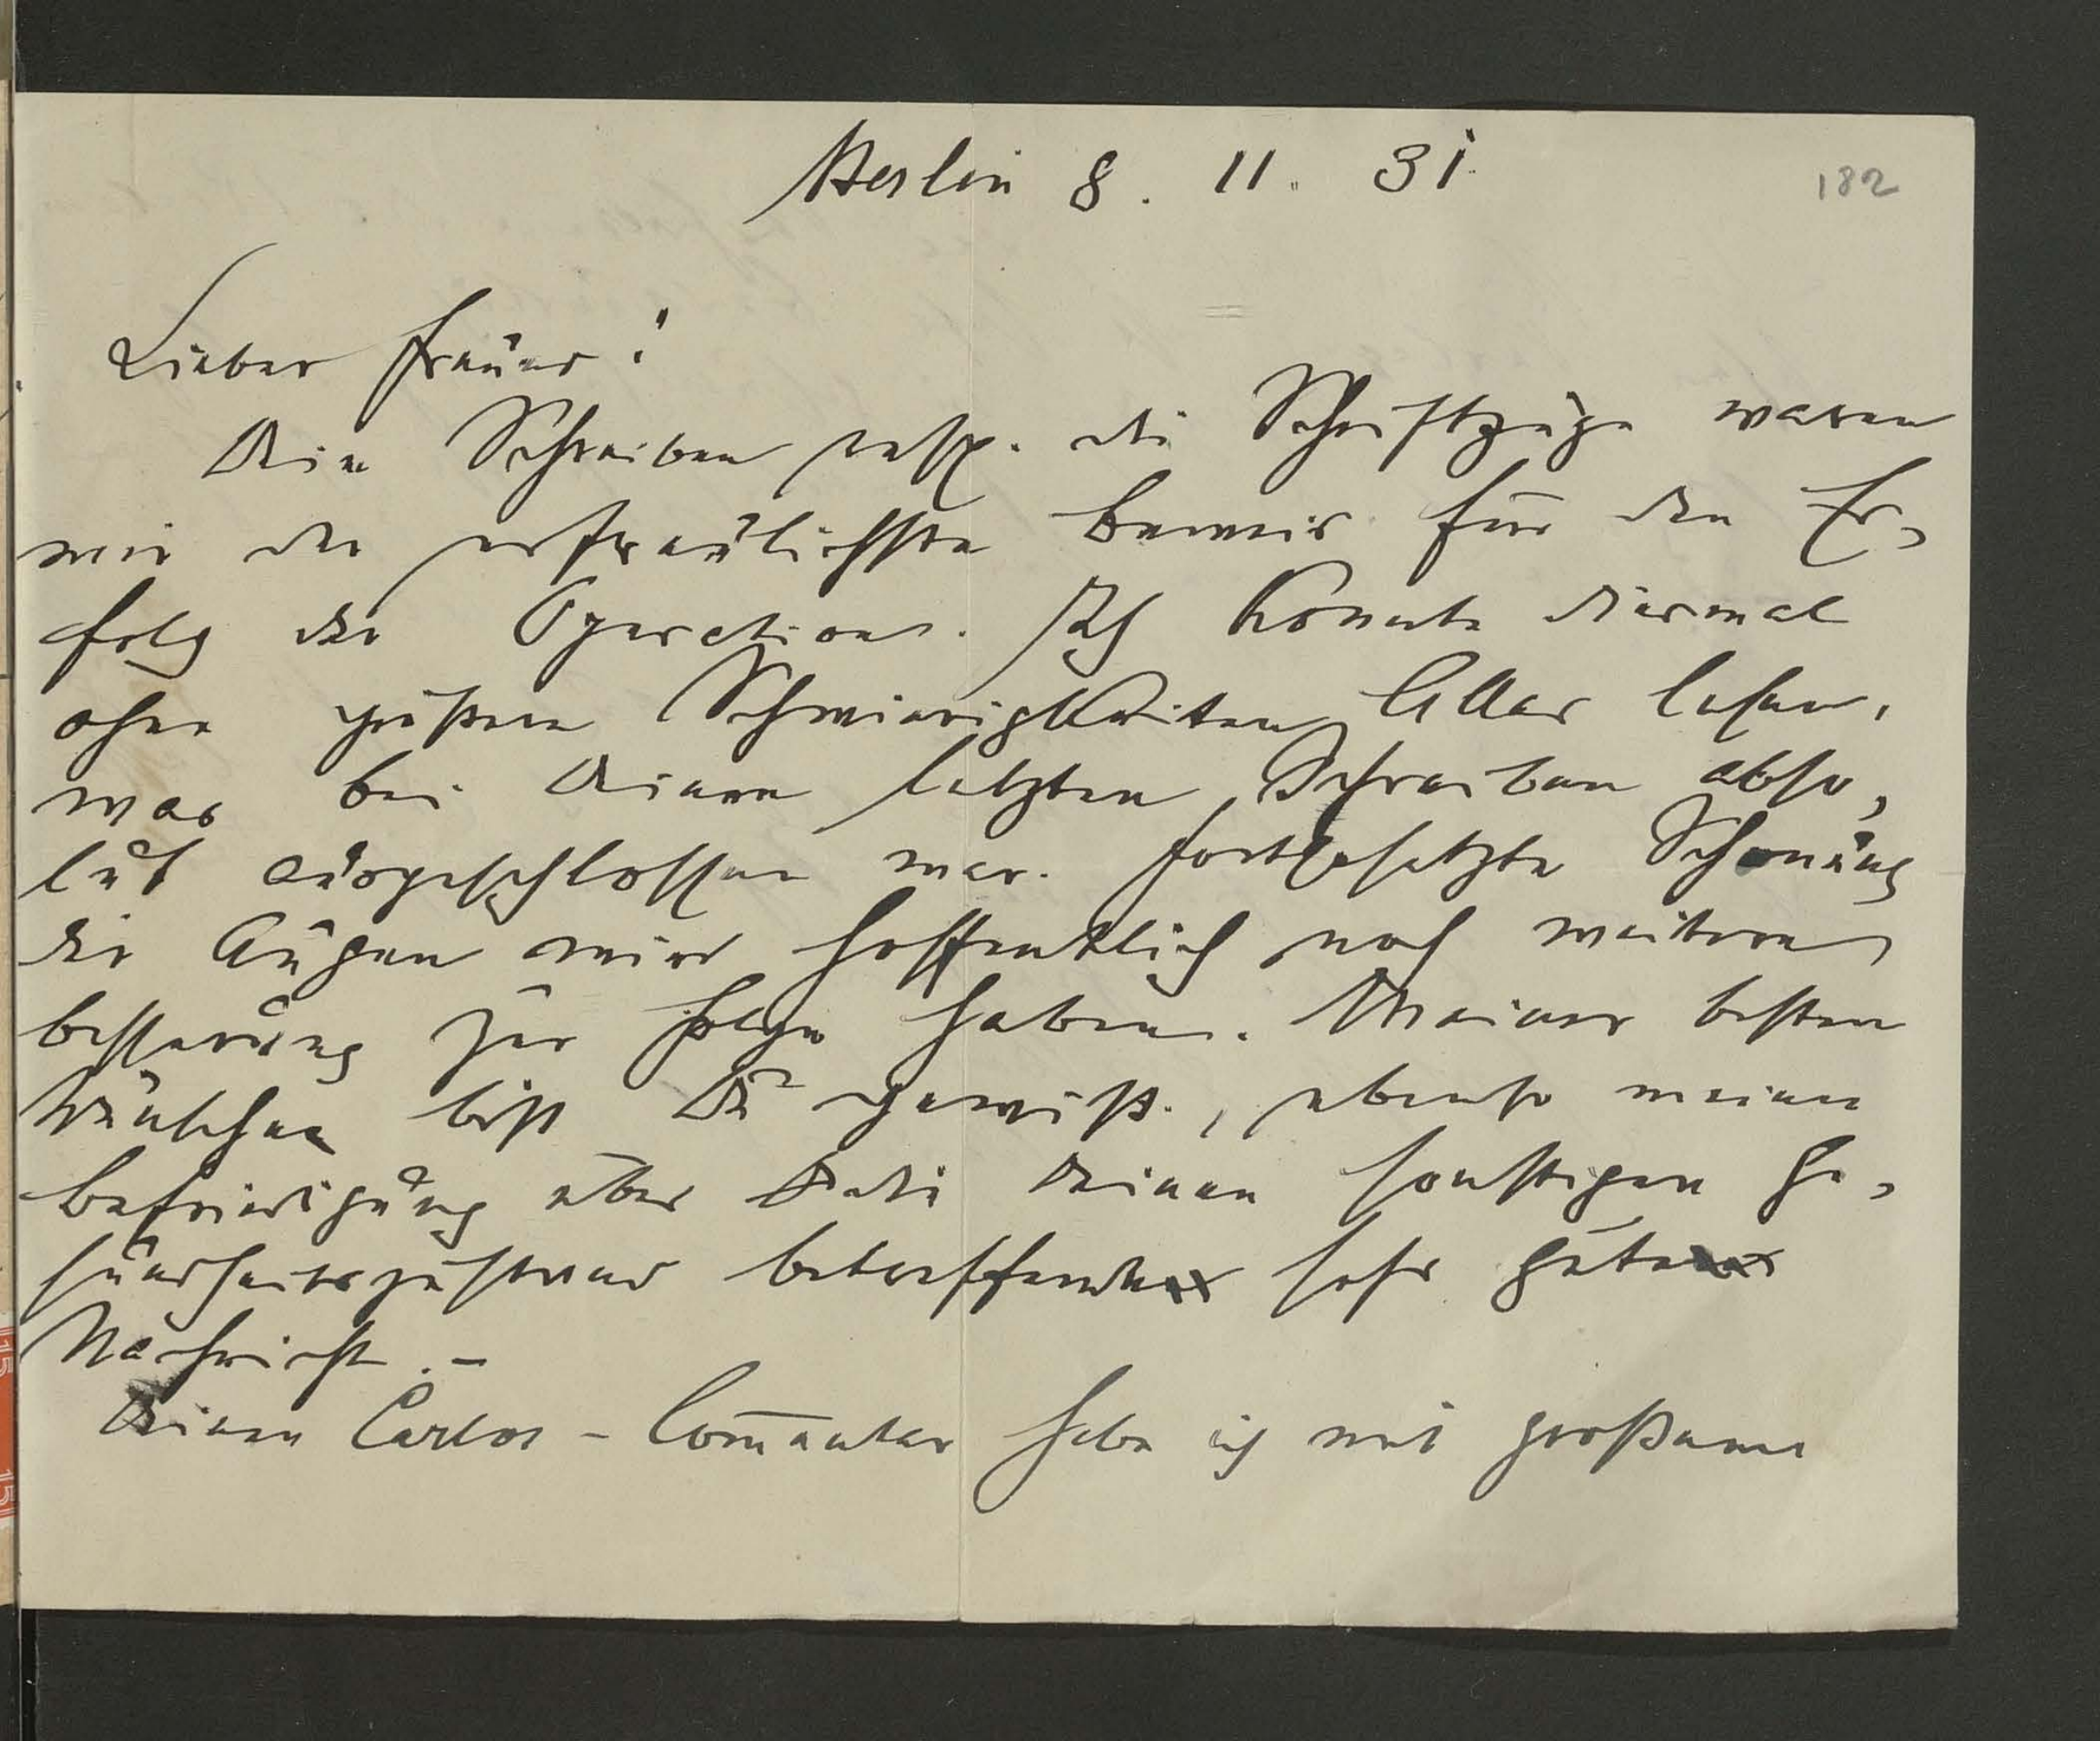 Berlin 8. 11. 31.
182
Lieber Freund!
Dein Schreiben resp. die Schriftzüge waren
mir der erfreulichste Beweis für den Er-
folg der Operationen. Ich konnte diesmal
ohne größere Schwierigkeiten Alles lesen,
was bei Deinem letzten Schreiben abso-
lut ausgeschlossen war. Fortgesetzte Schonung
der Augen wird hoffentlich noch weitere
Besserung zur Folge haben. Meiner besten
Wünsche bist Du gewiß, ebenso meiner
Befriedigung über die Deinen sonstigen Ge-
sundheitszustand betreffende sehr gute
Nachricht. –
Deinen Carlos-Com̄entar habe ich mit großem